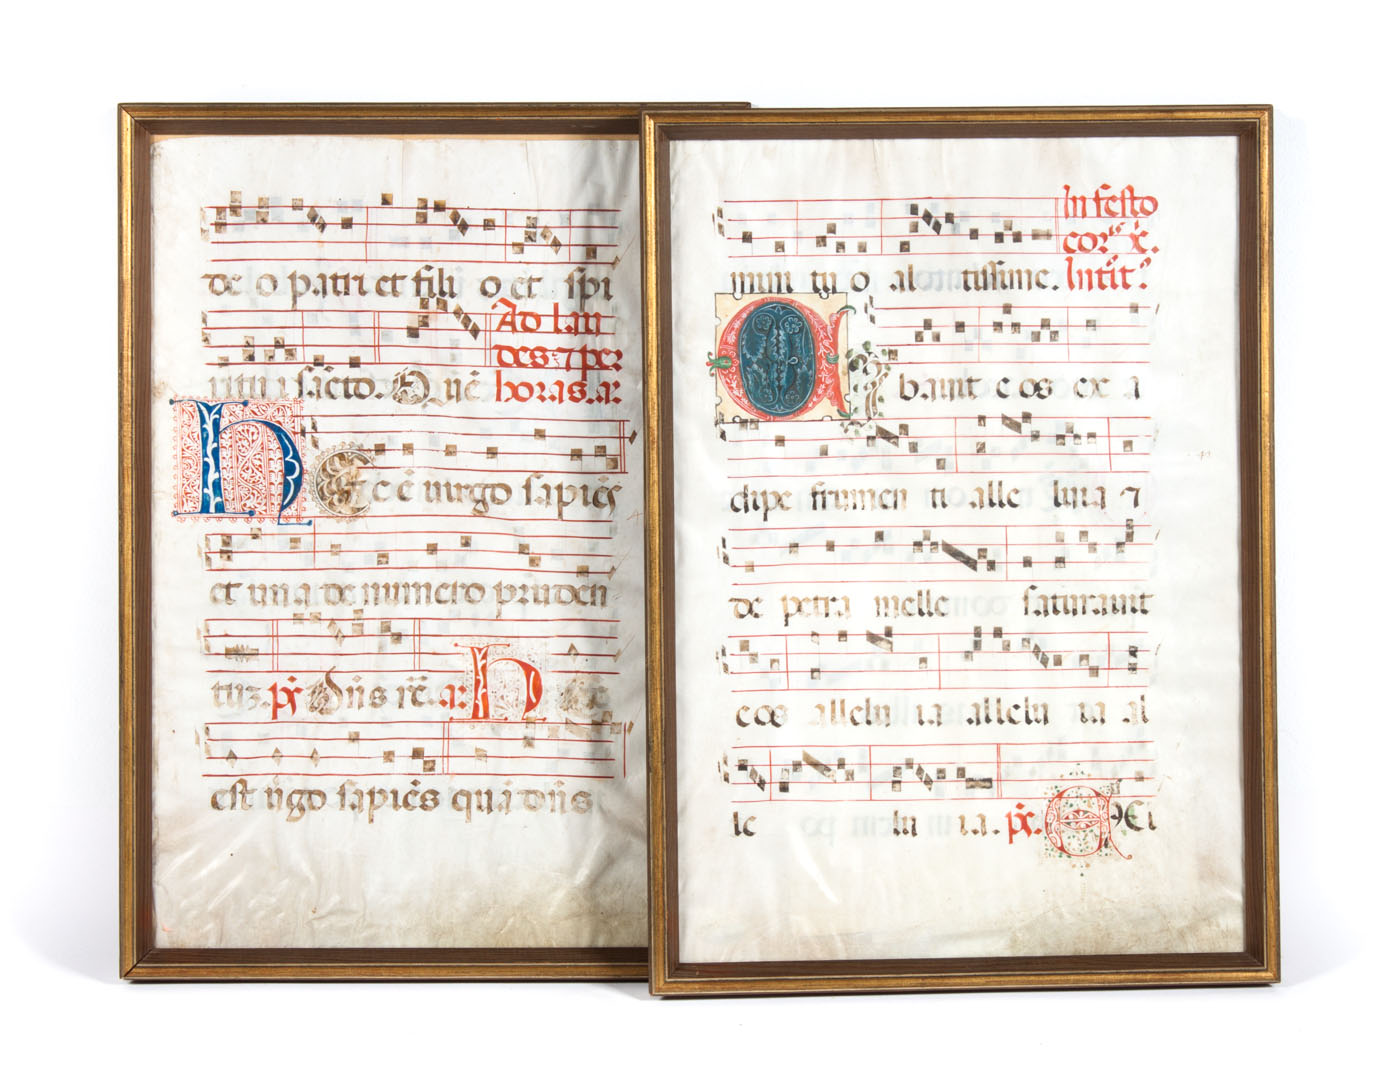 de o patri et fili o et spi
Ad lau
des ⁊ per
ritui sãcto. Quẽ
horas. añ.
Hec ẽ uirgo sapiẽs
et una de numero pruden
tuʒ. p̃s. Dñs rẽ. añ. Hec
est ũgo sapiẽs quã dñs
In festo
cor. x̃.
mun tu o al tissime. Intit̃.
Cibauit eos ex a
dipe frumen ti alle luia ⁊
de petra melle saturauit
eos allelu ia allelu ia al
le lu ia. p̃s. E